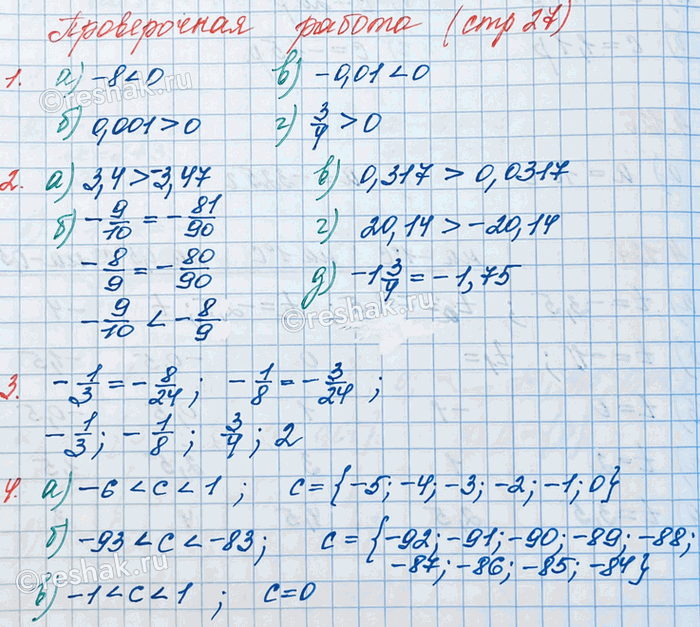 Проверочная работа (стр 27)
1. а) -8<0 в) -0,01<0
б) 0,001>0 г) 3/4>0
2. а) 3,4>-3,47 в) 0,317>0,0317
б) -9/10=-81/90 г) 20,14>-20,14
-8/9=-80/90 д) -1 3/4=-1,75
-9/10<-8/9
3. -1/3=-8/24; -1/8=-3/24;
-1/3; -1/8; 3/4; 2
4. а) -6<c<1; c={-5;-4;-3;-2;-1;0}
б) -93<c<-83; c={-92;-91;-90;-89;-88;
-87;-86;-85;-84}
в) -1<c<1; c=0
reshak.ru
reshak.ru
reshak.ru
reshak.ru